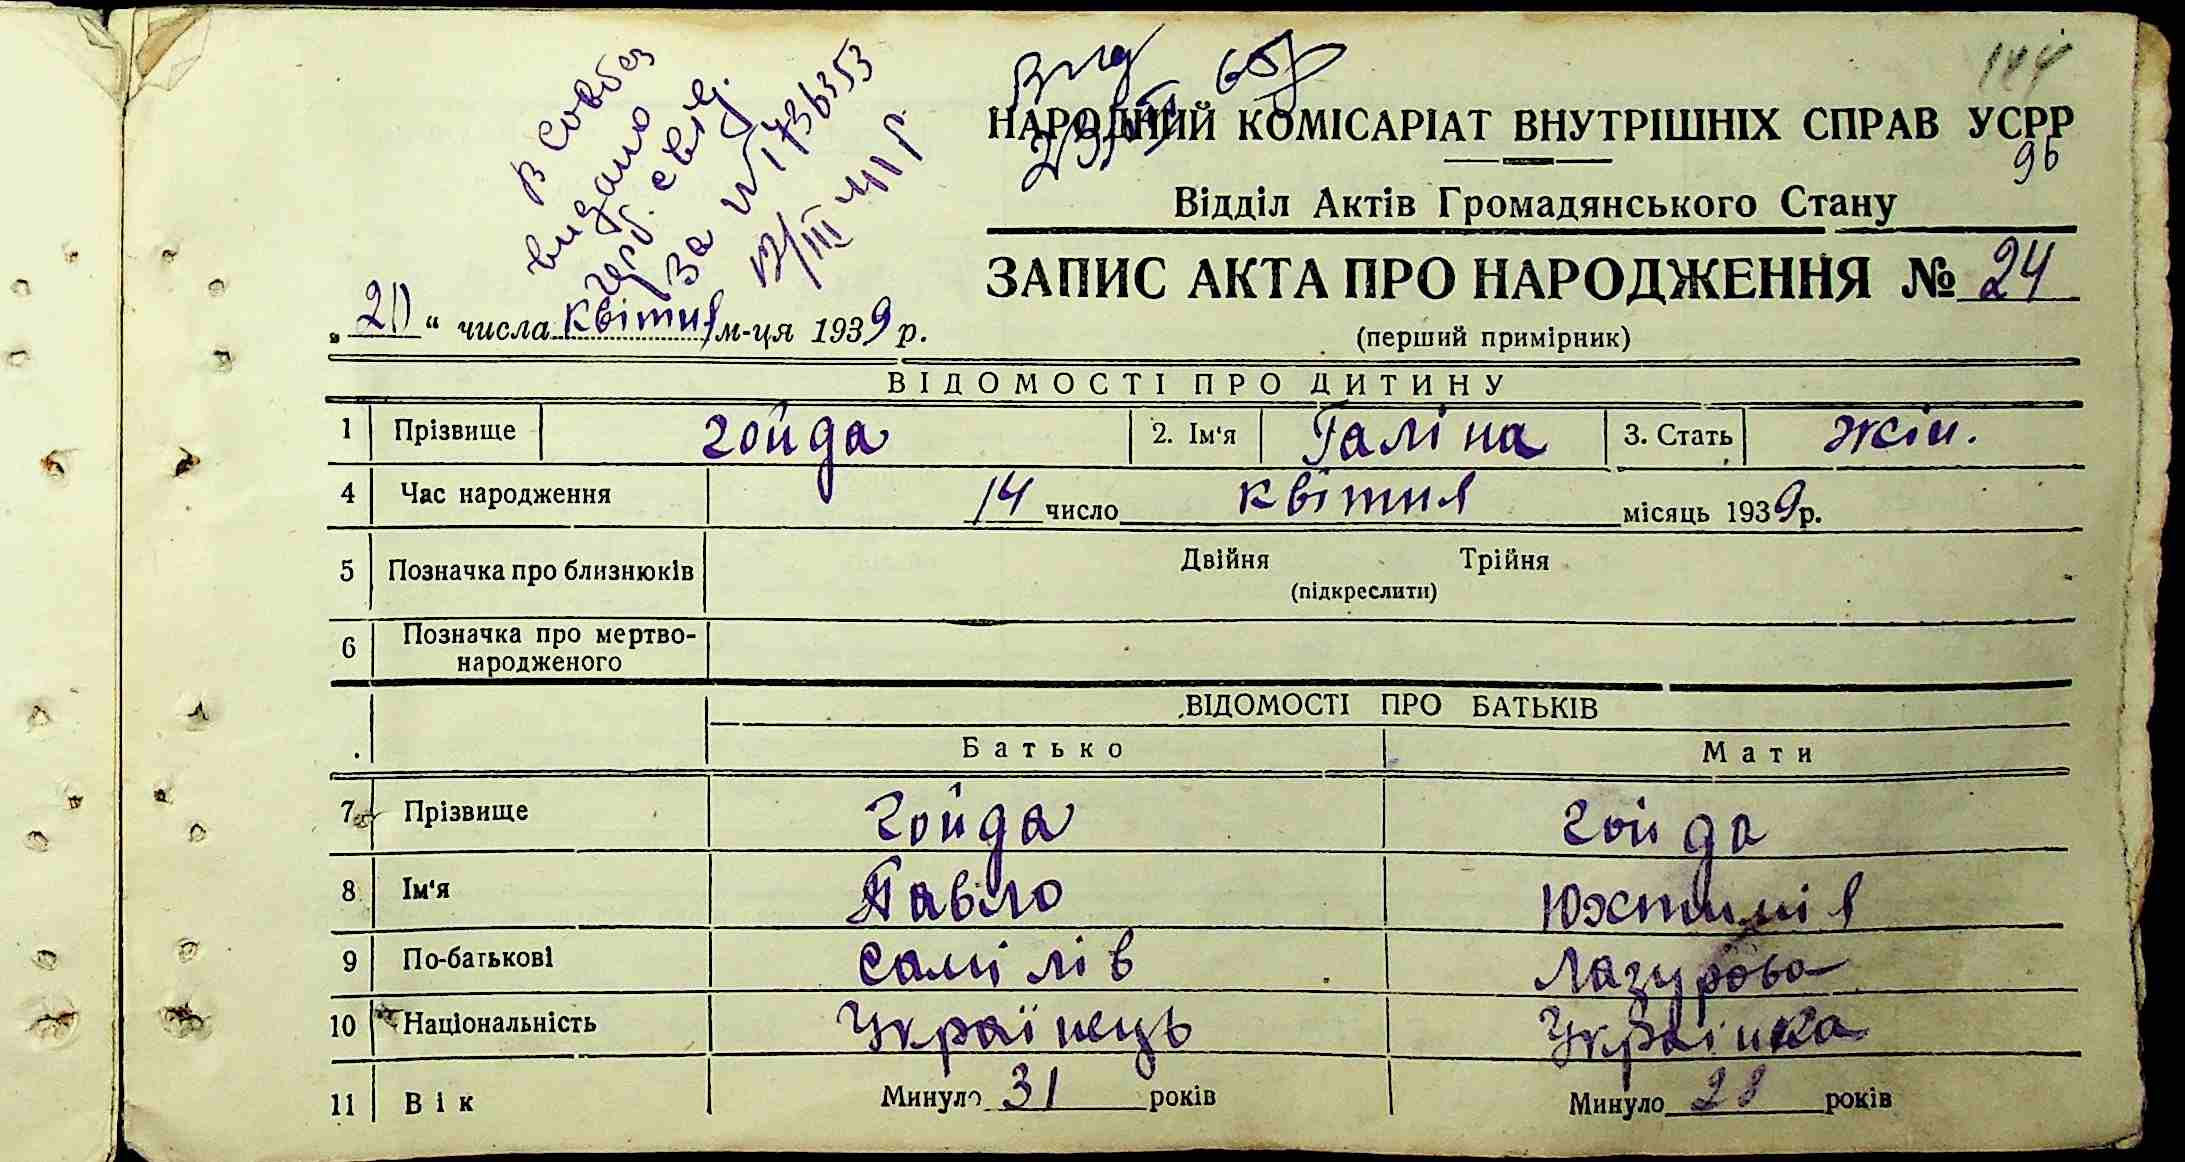 144
НАРОДНИЙ КОМІСАРІАТ ВНУТРІШНІХ СПРАВ УСРР
96
Відділ Актів Громадянського Стану
ЗАПИС АКТА ПРО НАРОДЖЕННЯ № 24
(перший примірник)
в Совбез
видано
свід.
за № 1736353
„20“ числа квітня м-ця 1939 р.
ВІДОМОСТІ ПРО ДИТИНУ
1 Прізвище гойда 2. Ім'я Галіна 3. Стать жін.
4 Час народження 14 число квітня місяць 1939 р.
5 Позначка про близнюків Двійня Трійня
(підкреслити)
6 Позначка про мертво-
народженого
ВІДОМОСТІ ПРО БАТЬКІВ
Батько Мати
7 Прізвище гойда гойда
8 Ім'я Павло Юхтимія
9 По-батькові Самілів Лазурова
10 Національність Українець Українка
11 Вік Минуло 31 років Минуло 28 років